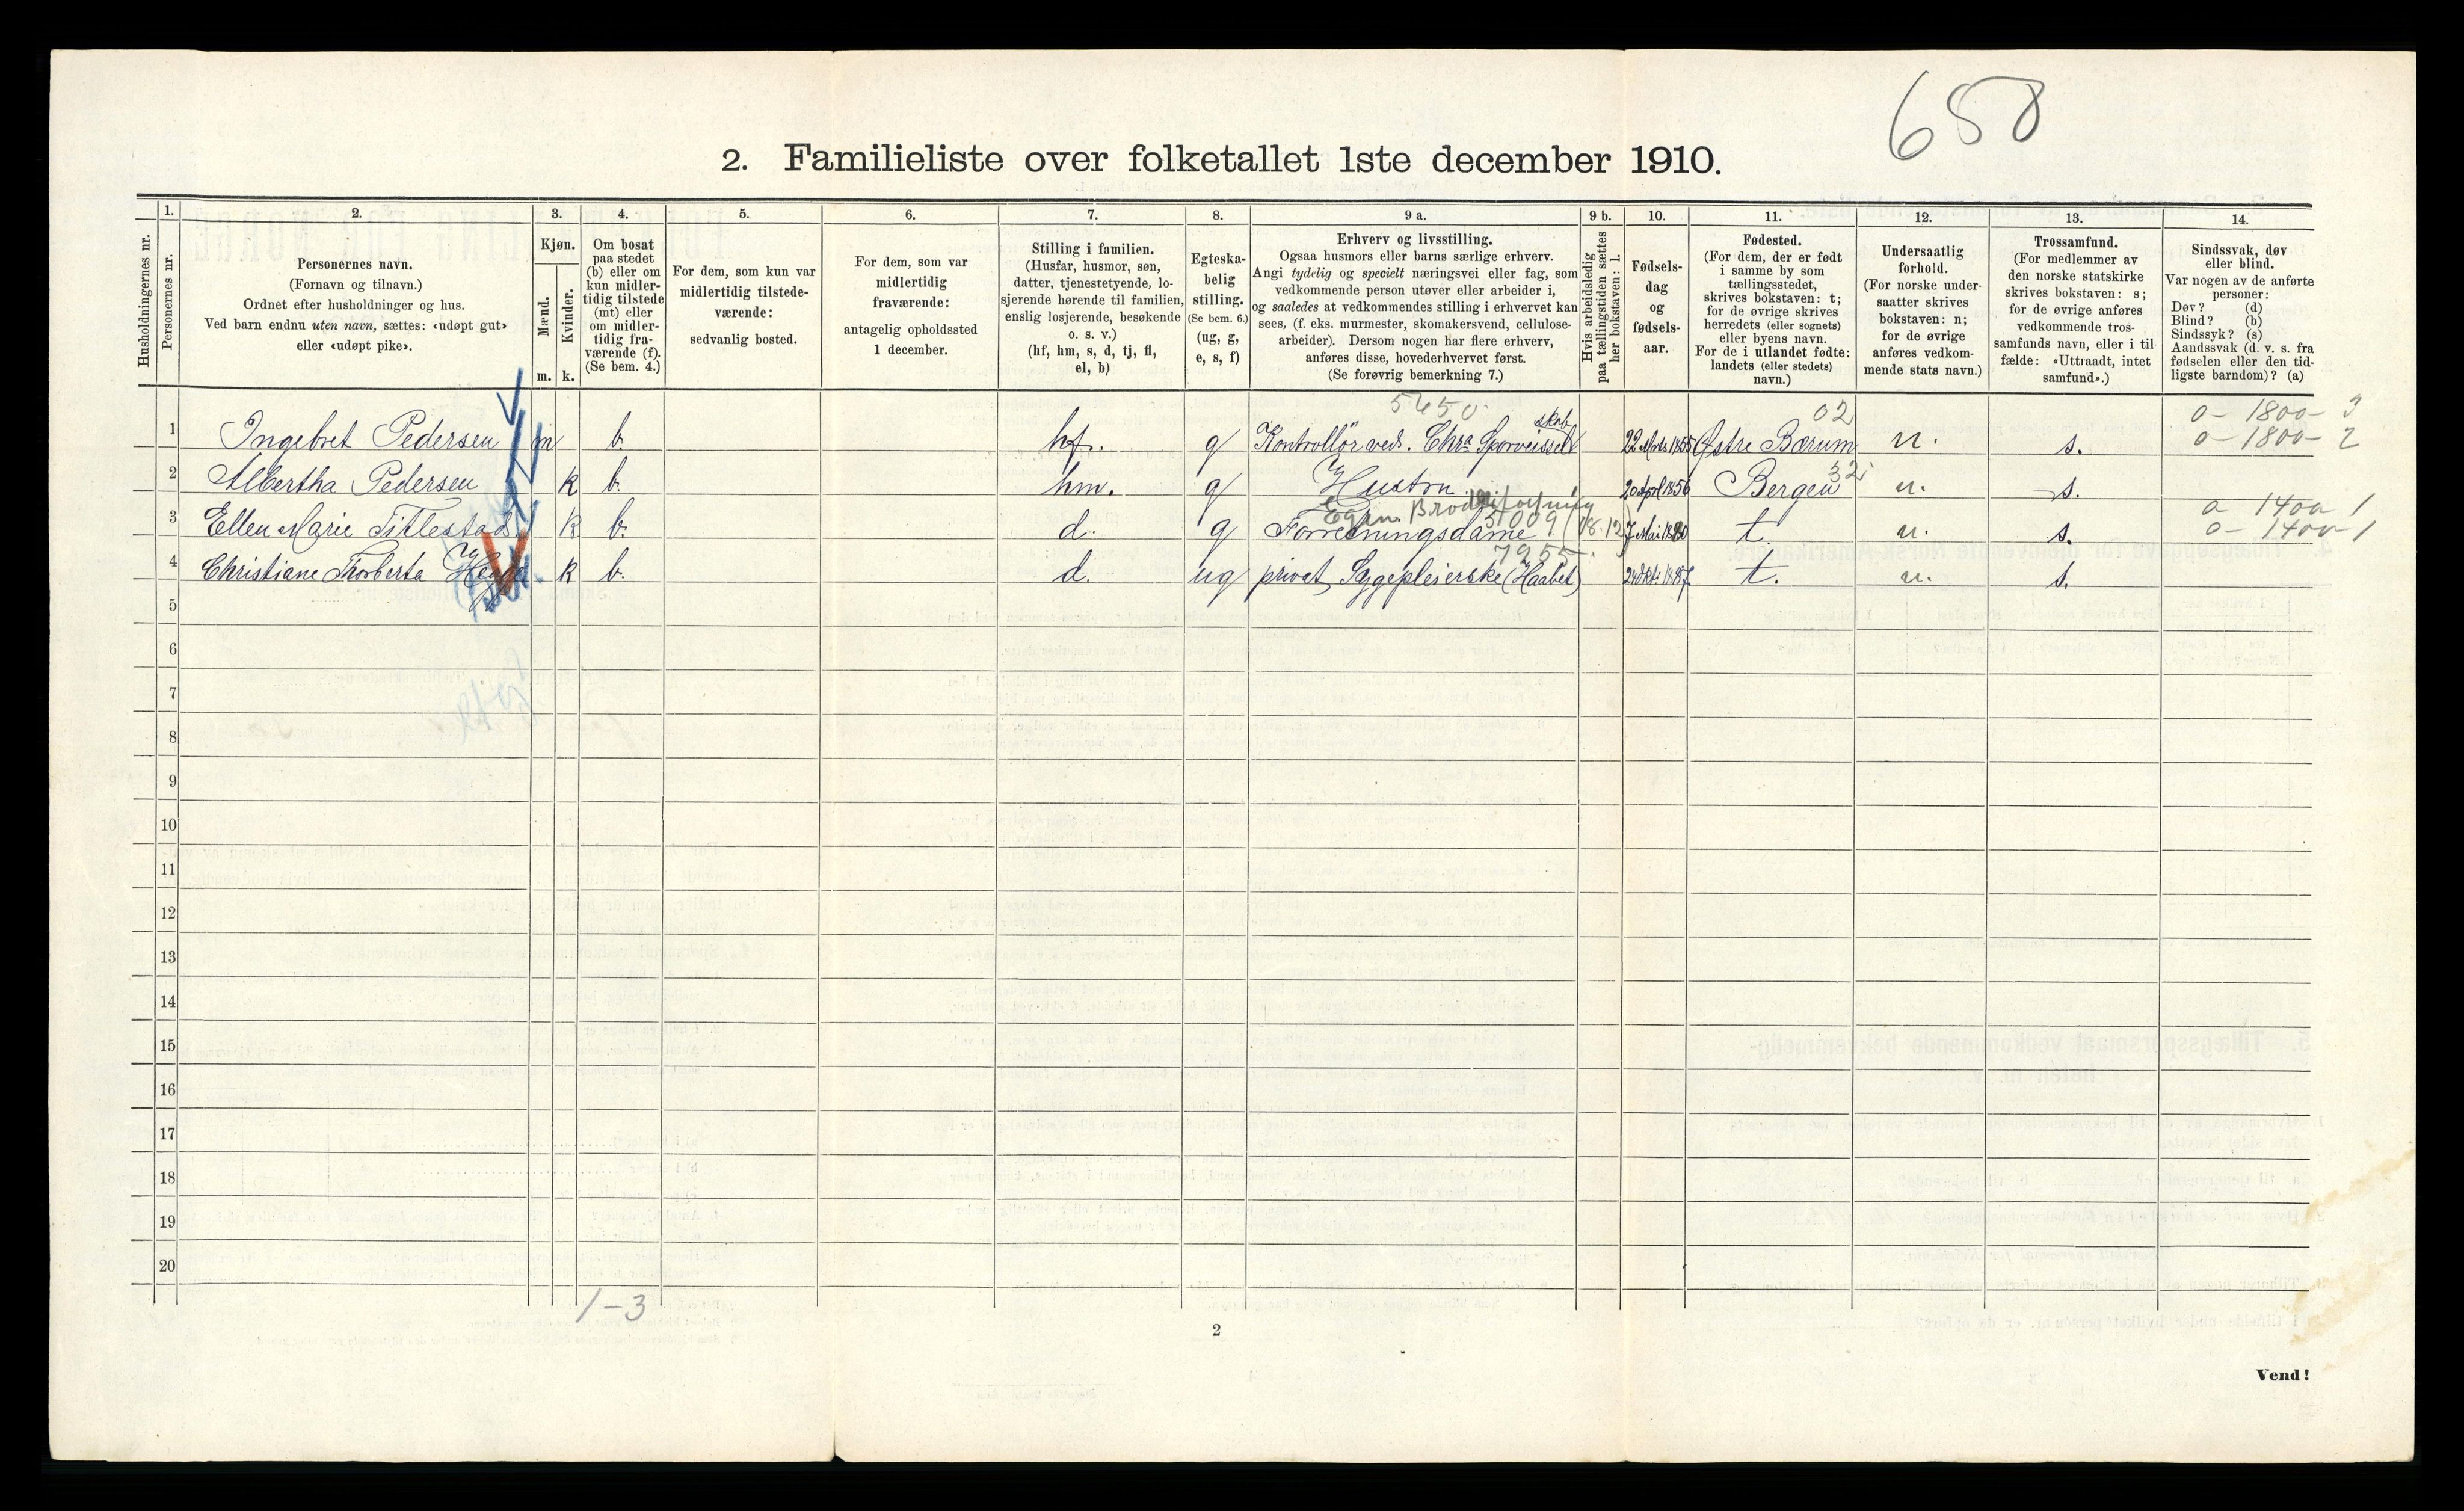 658
2. Familieliste over folketallet 1ste december 1910.
Husholdningernes nr.
1.
Personernes nr.
2.
Personernes navn.
(Fornavn og tilnavn.)
Ordnet efter husholdninger og hus.
Ved barn endnu uten navn, sættes: «udøpt gut»
eller «udøpt pike».
3.
Kjøn.
Mænd.
Kvinder.
m. k.
4.
Om bosat
paa stedet
(b) eller om
kun midler-
tidig tilstede
(mt) eller
om midler-
tidig fra-
værende (f).
(Se bem. 4.)
5.
For dem, som kun var
midlertidig tilstede-
værende:
sedvanlig bosted.
6.
For dem, som var
midlertidig
fraværende:
antagelig opholdssted
1 december.
7.
Stilling i familien.
(Husfar, husmor, søn,
datter, tjenestetyende, lo-
sjerende hørende til familien,
enslig losjerende, besøkende
o. s. v.)
(hf, hm, s, d, tj, fl,
el, b)
8.
Egteska-
belig
stilling.
(Se bem. 6.)
(ug, g,
e, s, f)
9 a.
Erhverv og livsstilling.
Ogsaa husmors eller barns særlige erhverv.
Angi tydelig og specielt næringsvei eller fag, som
vedkommende person utøver eller arbeider i,
og saaledes at vedkommendes stilling i erhvervet kan
sees, (f. eks. murmester, skomakersvend, cellulose-
arbeider). Dersom nogen har flere erhverv,
anføres disse, hovederhvervet først.
(Se forøvrig bemerkning 7.)
9 b.
Hvis arbeidsledig
paa tællingstiden sættes
her bokstaven: l.
10.
Fødsels-
dag
og
fødsels-
aar.
11.
Fødested.
(For dem, der er født
i samme by som
tællingsstedet,
skrives bokstaven: t;
for de øvrige skrives
herredets (eller sognets)
eller byens navn.
For de i utlandet fødte:
landets (eller stedets)
navn.)
12.
Undersaatlig
forhold.
(For norske under-
saatter skrives
bokstaven: n;
for de øvrige
anføres vedkom-
mende stats navn.)
13.
Trossamfund.
(For medlemmer av
den norske statskirke
skrives bokstaven: s;
for de øvrige anføres
vedkommende tros-
samfunds navn, eller i til-
fælde: «Uttraadt, intet
samfund».)
14.
Sindssvak, døv
eller blind.
Var nogen av de anførte
personer:
Døv? (d)
Blind? (b)
Sindssyk? (s)
Aandssvak (d. v. s. fra
fødselen eller den tid-
ligste barndom)? (a)
5650. 02 0- 1800- 3
1 Ingebret Pedersen m b. hf. g Kontrollør ved. Chra Sporveisselskab 22 1855 Østre Bærum n. s. 0- 1800- 2
2 Albertha Pedersen k b. hm. g Hustru 20 Apl 1856 Bergen 32 n. s.
Egen 5009 0 1400 1
3 Ellen Marie Titlestad k b. d. g Forretningsdame (18.12) 7 Mai 1880 t. n. s. 0- 1400-1
7955.
4 Christiane Thorberta k b. d. ug privat Sygepleierske (Haabet) 24 Okt. 1887 t. n. s.
5
6
7
8
9
10
11
12
13
14
15
16
17
18
19
20
1-3
2
Vend!